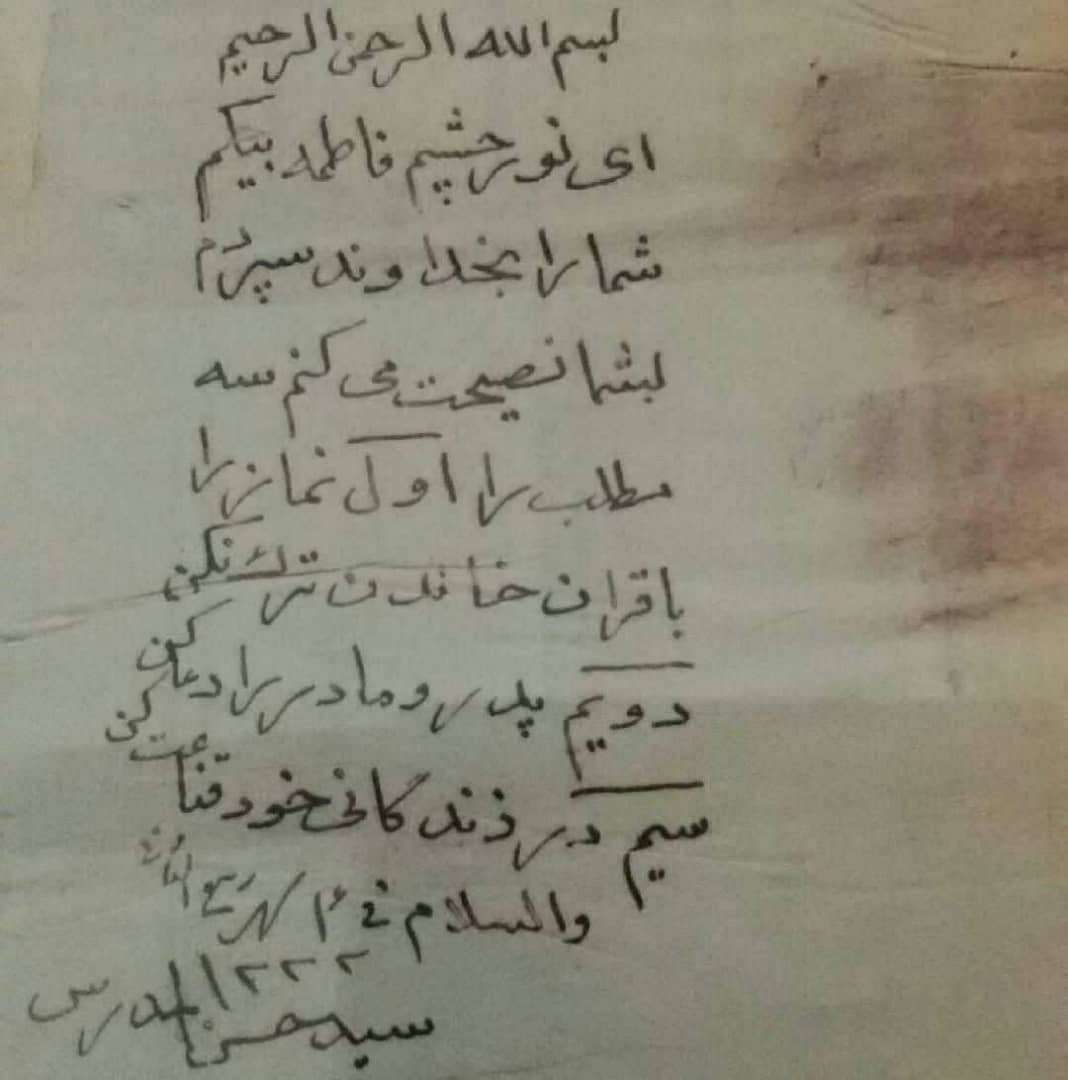 بسم الله الرحمن الرحیم
ای نور چشم فاطمه بیکم
شما را بخداوند سپردم
بشما نصیحت می کنم سه
مطلب را اول نماز را
با قران خاندن ترک نکن
دویم پدر و مادر را دعا کن
سیم در ذندکانی خود قناعت کن
والسلام فی شهر ربیع الثانی
۱۲۲۲
سید حسن المدرس